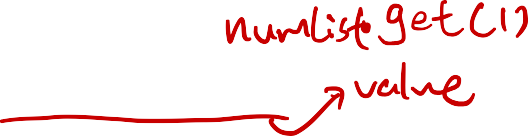 numlist.get(1)
value